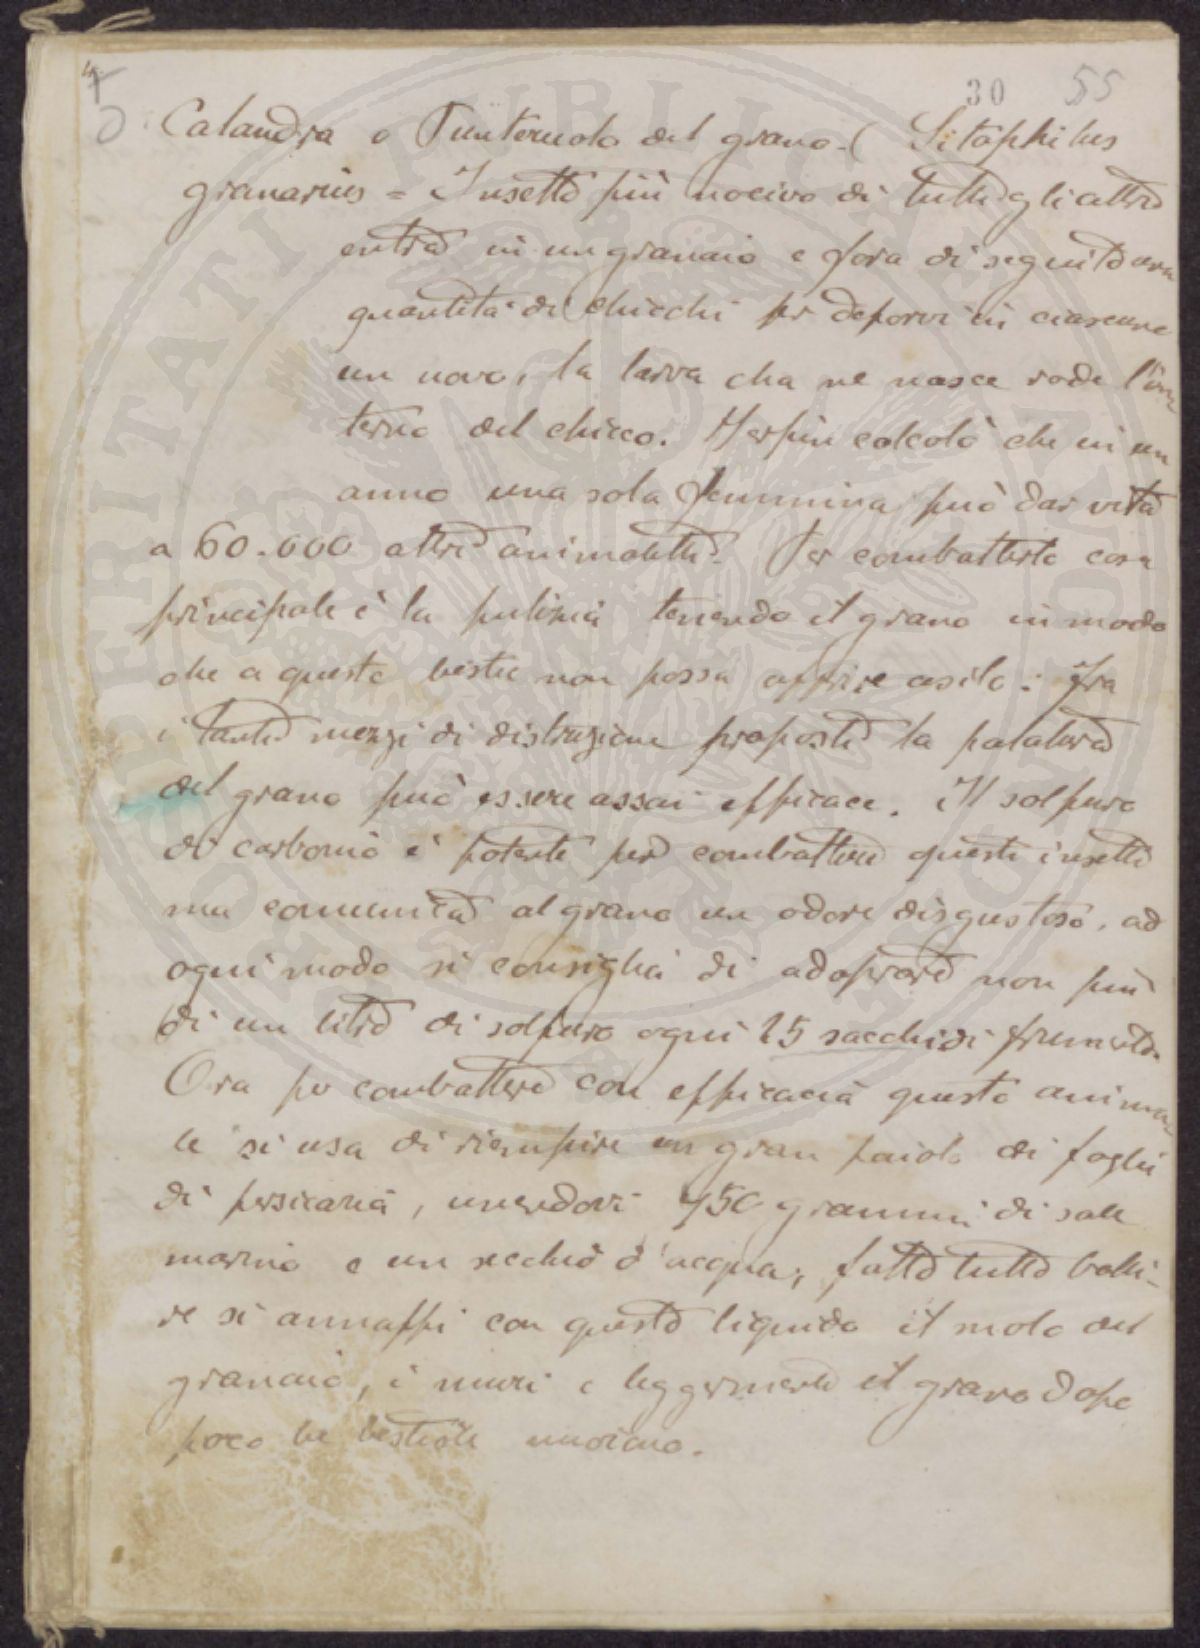 30 55
Calandra o Punteruolo del grano - ( Sitophilus
granarius = Insetto più nocivo di tutti gli altri
entra in un granaio e fora di seguito una
quantità di chicchi per deporvi in ciascuno
un uovo, la larva cha ne nasce rode l'in
terno del chicco. Herpin calcolò che in un
anno una sola femmina può dar vita
a 60.000 altri animaletti. Per combatterlo cosa
principale è la pulizia tenendo il grano in modo
che a queste bestie non possa offrire asilo: Fra
i tanti mezzi di distruzione proposti la palatura
del grano può essere assai efficace. Il solfuro
di carbonio è potente per combattere questi insetti
ma comunica al grano un odore disgustoso, ad
ogni modo si consiglia di adoprare non più
di un litro di solfuro ogni 25 sacchi di frumento.
Ora per combattere con efficacia questo anima
le si usa di riempire un gran paiolo di foglie
di persicaria, unendovi 750 grammi di sale
marino e un secchio d'acqua; fatto tutto bolli-
re si annaffi con questo liquido il suolo del
granaio, i muri e leggermente il grano dopo
poco le bestiole muoiono.
PUBLICAE VTILITATI